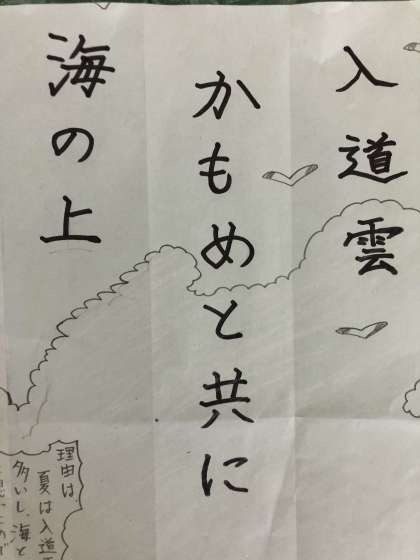 入道雲
かもめと共に
海の上
理由は
夏は入道
多いし、海と